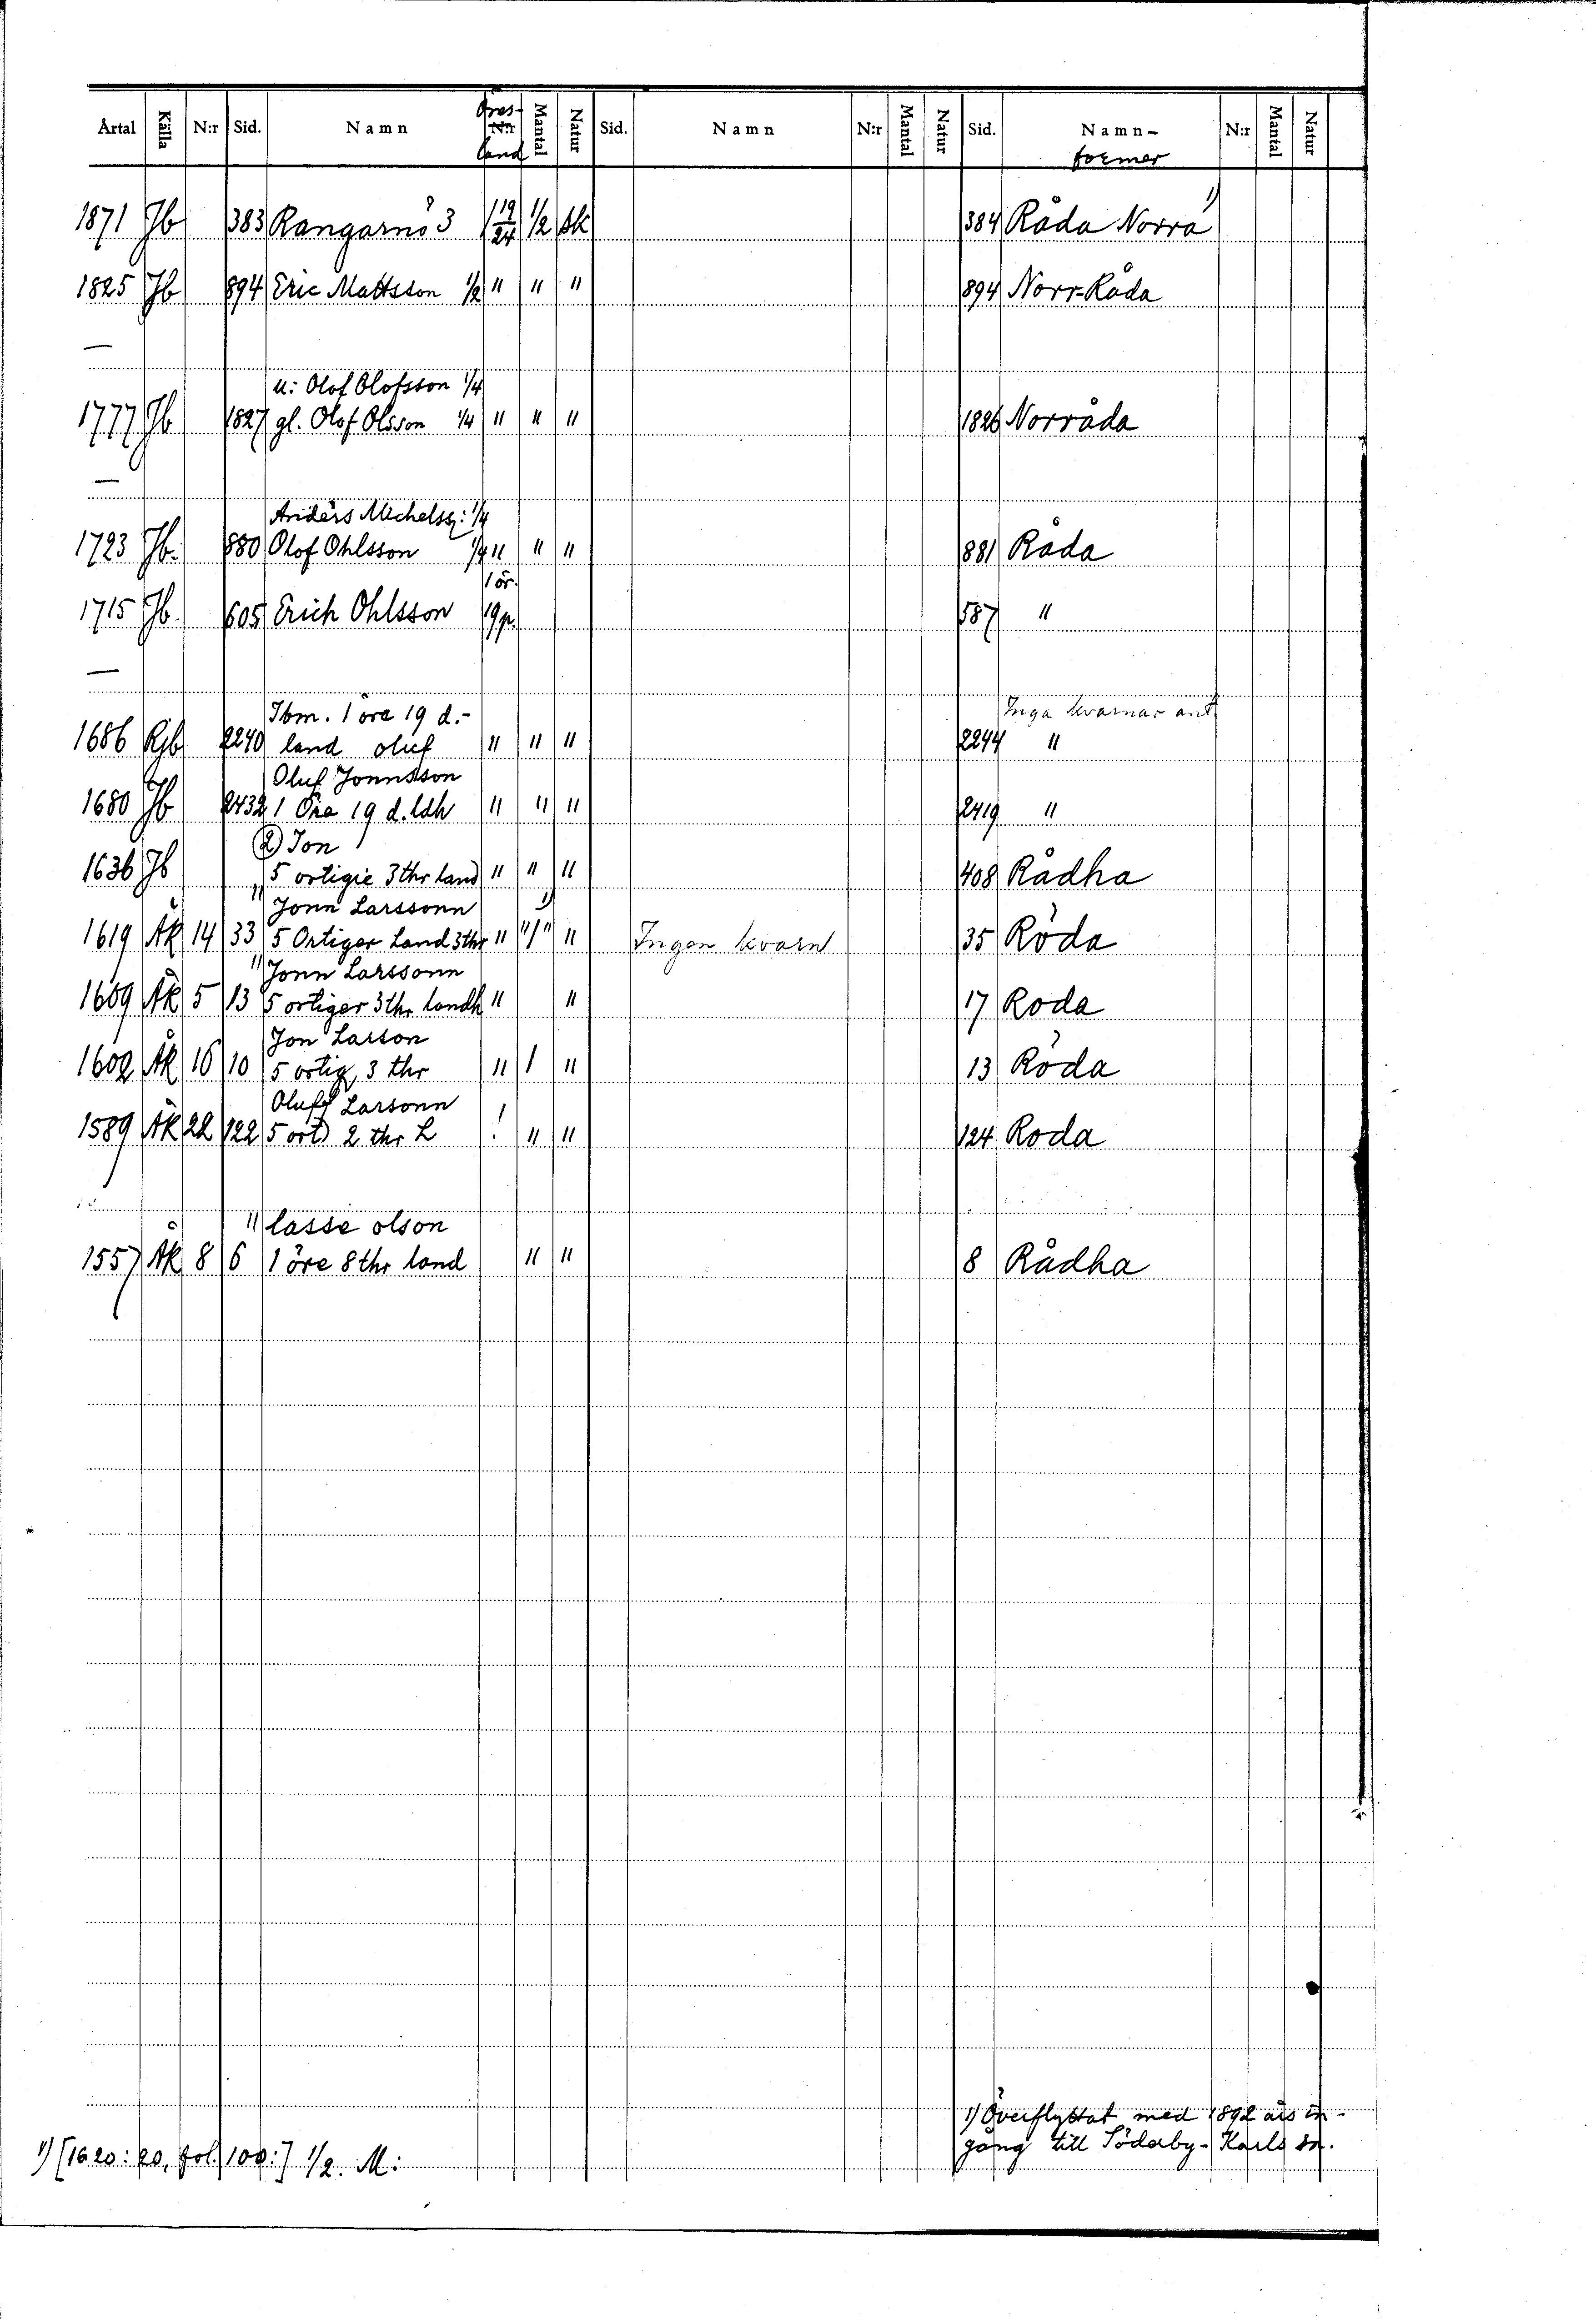 Årtal Källa N:r Sid. Namn Öres- N:r land Mantal Natur Sid. Namn N:r Mantal Natur Sid. Namn- former N:r Mantal Natur
1871 Jb 383 Rangarnö 3 1 19/24 1/2 sk 384 Råda Norra 1)
1825 Jb 894 Eric Mattsson 1/2 " " " 894 Norr-Råda
—
u: Olof Olofsson 1/4
1777 Jb 1827 gl. Olof Olsson 1/4 " " " 1826 Norråda
—
Anders Michelss: 1/4
1723 Jb. 880 Olof Ohlsson 1/4 " " " 881 Råda
1 ör.
1715 Jb. 605 Erich Ohlsson 19 p. 587 "
—
Ibm. 1 öre 19 d.- Inga kvarnar ant
1686 Rjb 2240 land oluf " " " 2244 "
Oluf Jonnsson
1680 Jb 2432 1 Öre 19 d. ldh " " " 2419 "
2) Jon
1636 Jb 5 ortigie 3 thr land " " " 408 Rådha
" Jonn Larssonn 1)
1619 Äk 14 33 5 Ortiger Land 3 thr " "1" " Ingen kvarn 35 Röda
" Jonn Larssonn
1609 Äk 5 13 5 ortiger 3 thr. landh " " 17 Roda
Jon Larson
1602 Åk 16 10 5 ortig, 3 thr " 1 " 13 Röda
Oluff Larsonn
1589 Åk 22 122 5 ort) 2 thr L ! " " 124 Roda
" lasse olson
1557 Åk 8 6 1 öre 8 thr land " " 8 Rådha
1) Överflyttat med 1892 års in-
gång till Söderby-Karls sn.
1) [1620: 20, fol. 100:] 1/2. M: